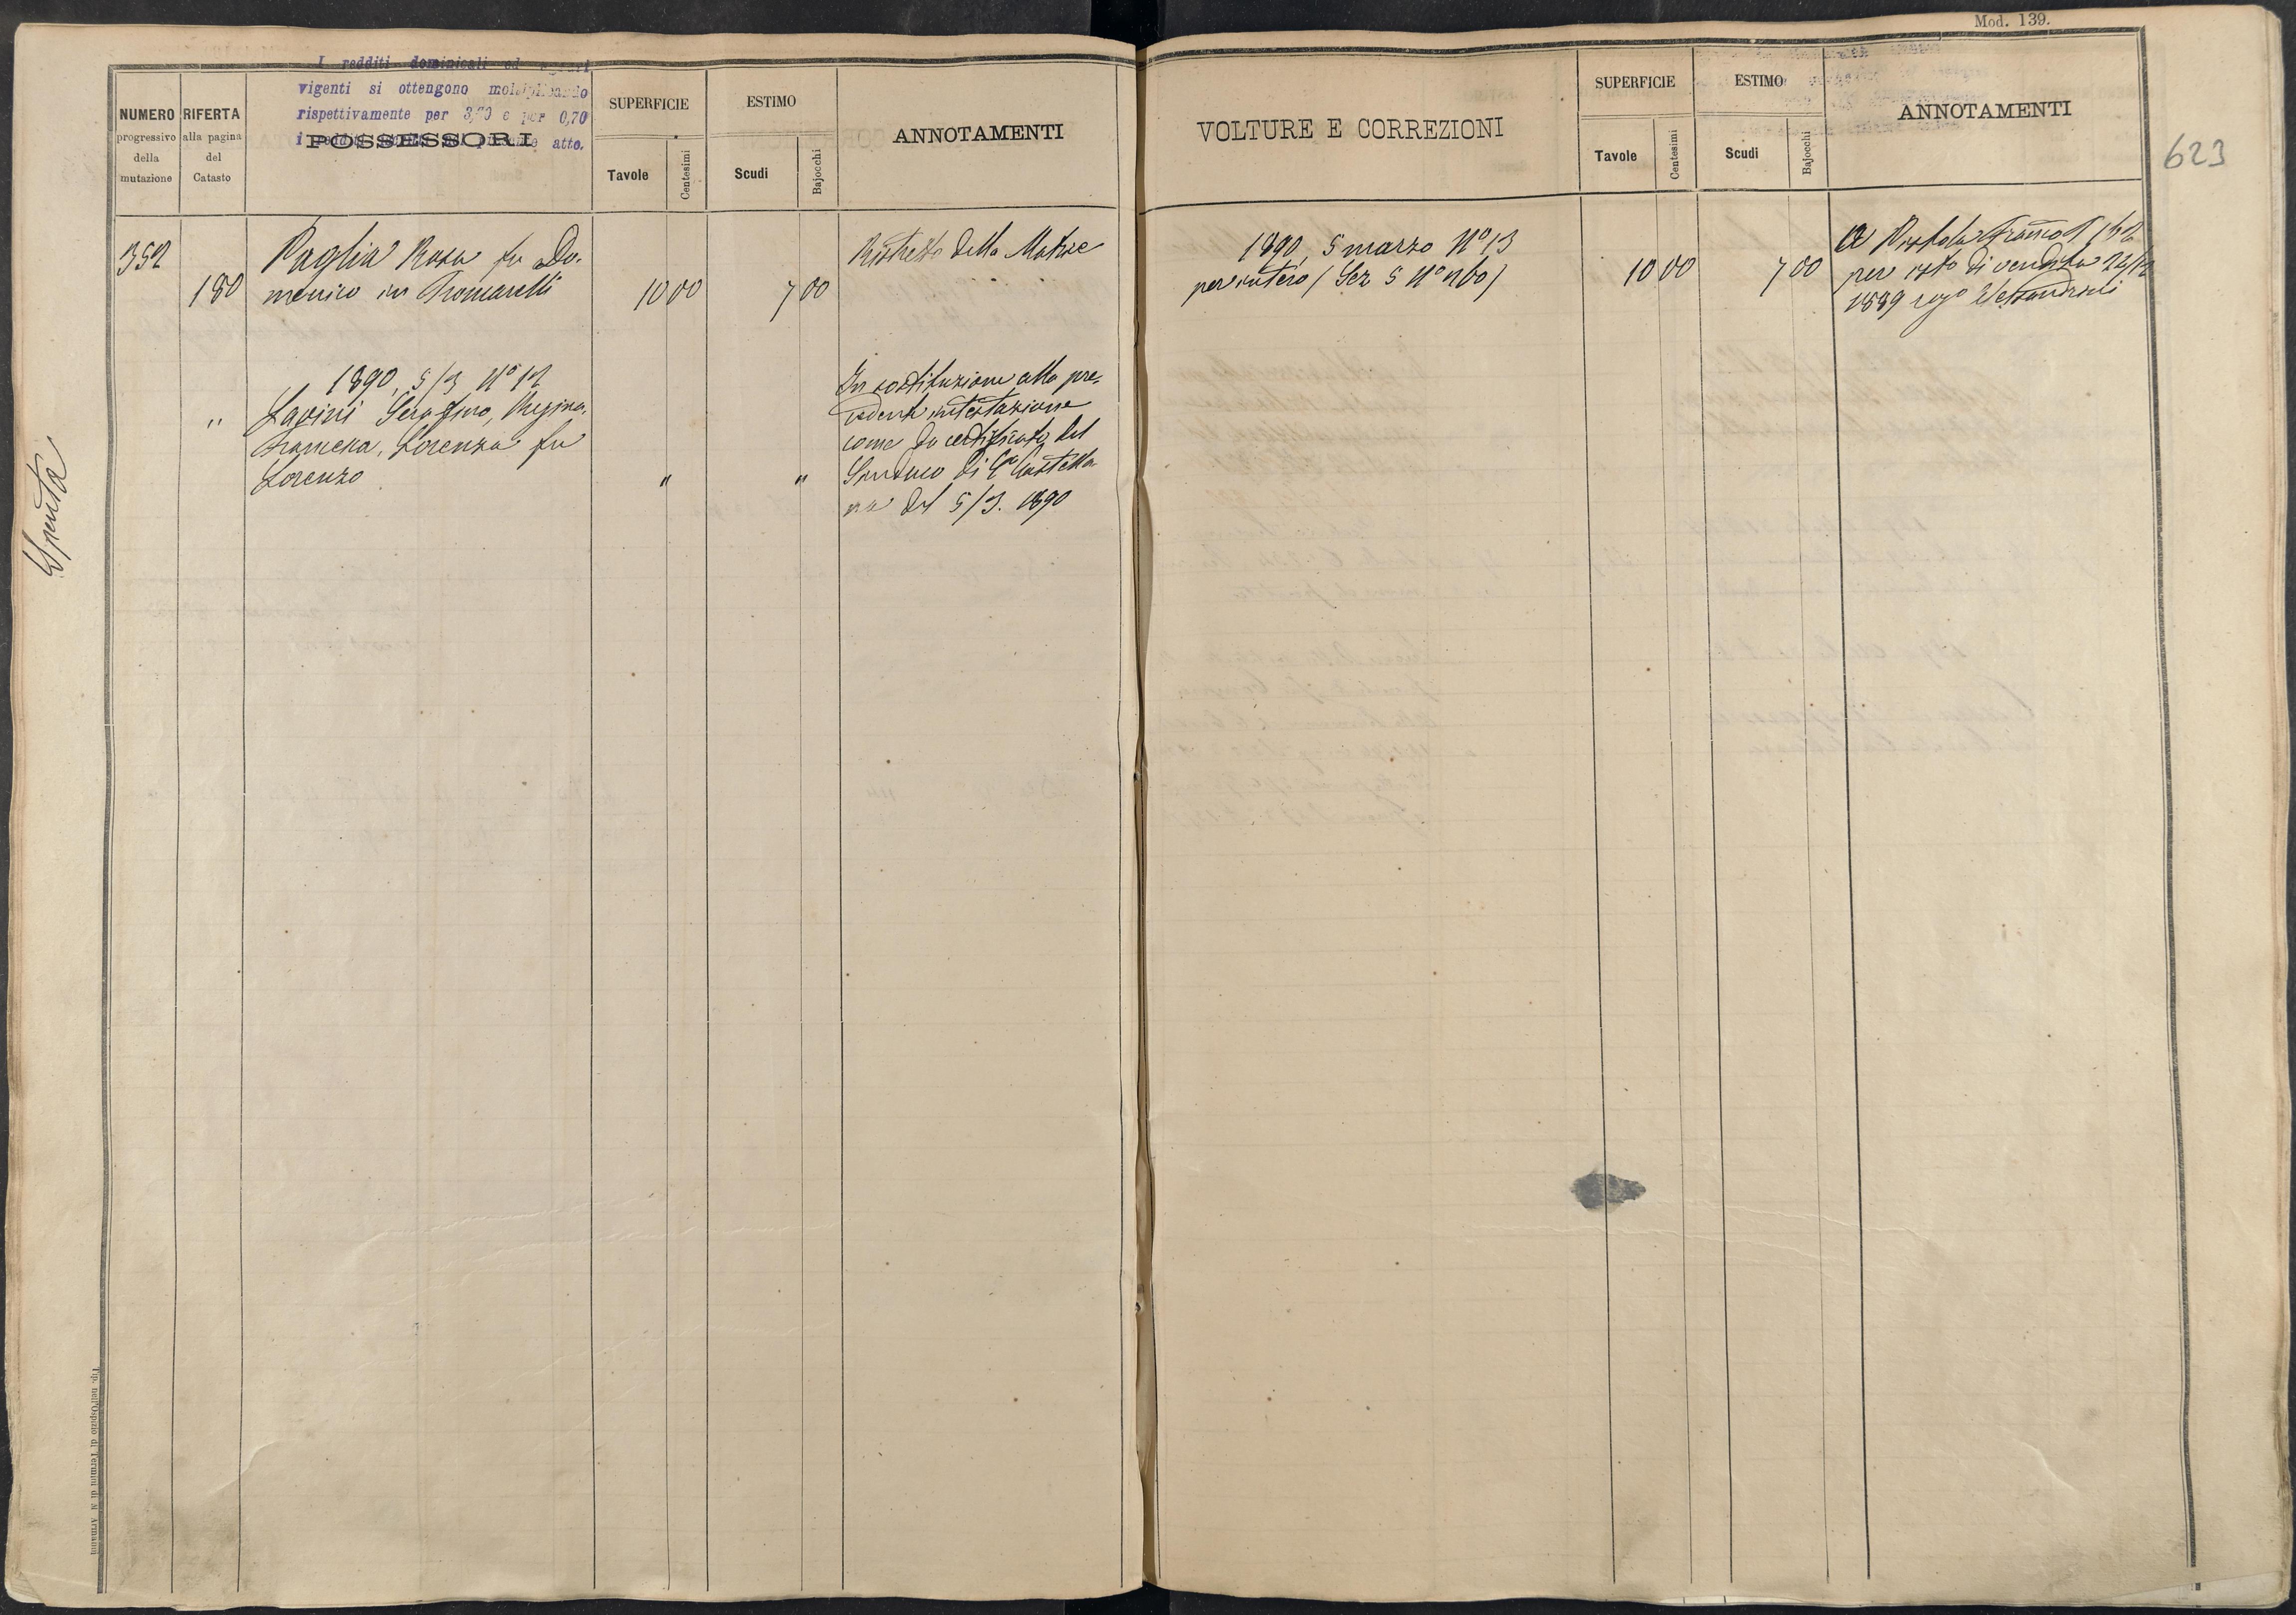 Mod. 139.
I redditi dominicali ed agrari
vigenti si ottengono moltiplicando
rispettivamente per 3,70 e per 0,70
i redditi atto.
NUMERO
progressivo
della
mutazione
RIFERTA
alla pagina
del
Catasto
POSSESSORI
SUPERFICIE
Tavole
Centesimi
ESTIMO
Scudi
Bajocchi
ANNOTAMENTI
VOLTURE E CORREZIONI
SUPERFICIE
Tavole
Centesimi
ESTIMO
Scudi
Bajocchi
ANNOTAMENTI
623
352
180
Paglia Rosa fu Do-
menico in Tromarelli
10 00
7 00
Ristretto della Matrice
1890, 5/3 N° 12
" Lavini Serafino,
Lorenza fu
Lorenzo
"
"
In sostituzione alla pre-
cedente intestazione
come da certificato del
Sindaco di Ca Castella
na del 5/3. 1890
1890, 5 marzo N° 13
per intero (Ser 5 N° 1160)
10 00
7 00
A
per atto di vendita 24/12
1889 rogo Alessandrini
Spenta
Tip. nell'Ospizio di Termini di A. Armanni